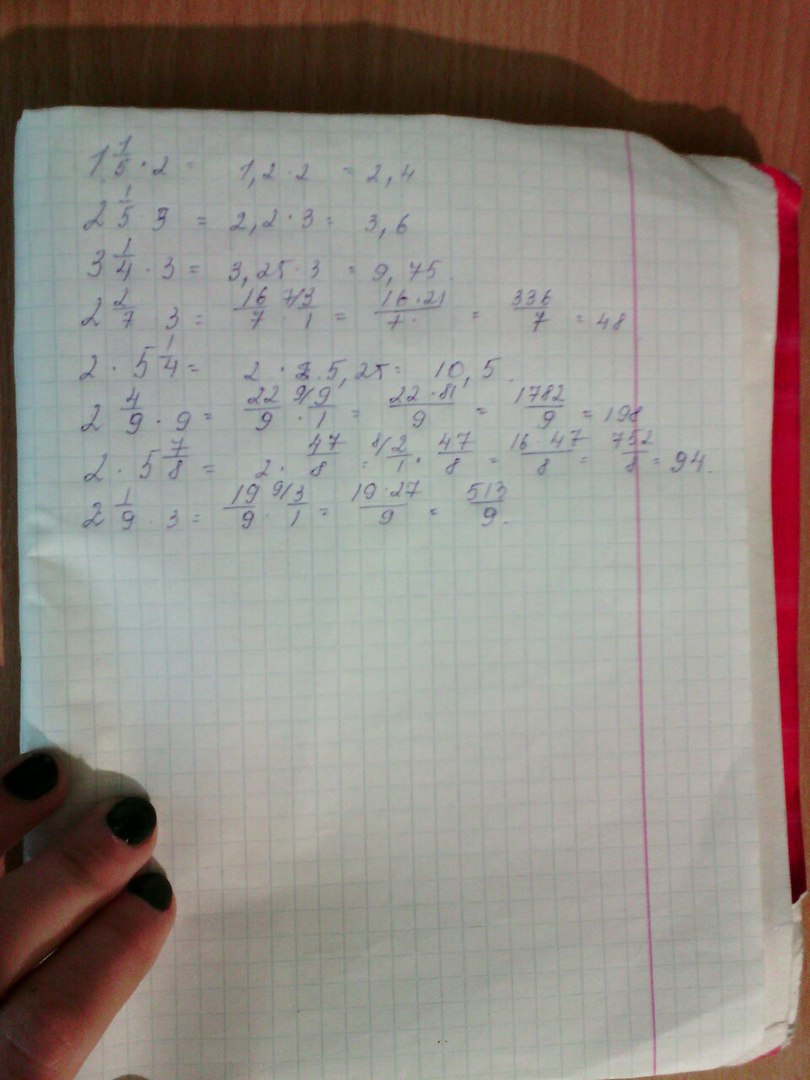 1 1/5 · 2 = 1,2 · 2 = 2,4
2 1/5 · 3 = 2,2 · 3 = 3,6
3 1/4 · 3 = 3,25 · 3 = 9,75.
2 2/7 3 = 16/7 · 7/3/1 = 16·21/7· = 336/7 = 48
2 · 5 1/4 = 2 · 5,25 = 10,5.
2 4/9 · 9 = 22/9 · 9/9/1 = 22·81/9 = 1782/9 = 198
2 · 5 7/8 = 2 · 47/8 = 8/2/1 · 47/8 = 16·47/8 = 752/8 = 94.
2 1/9 · 3 = 19/9 · 9/3/1 = 19·27/9 = 513/9.